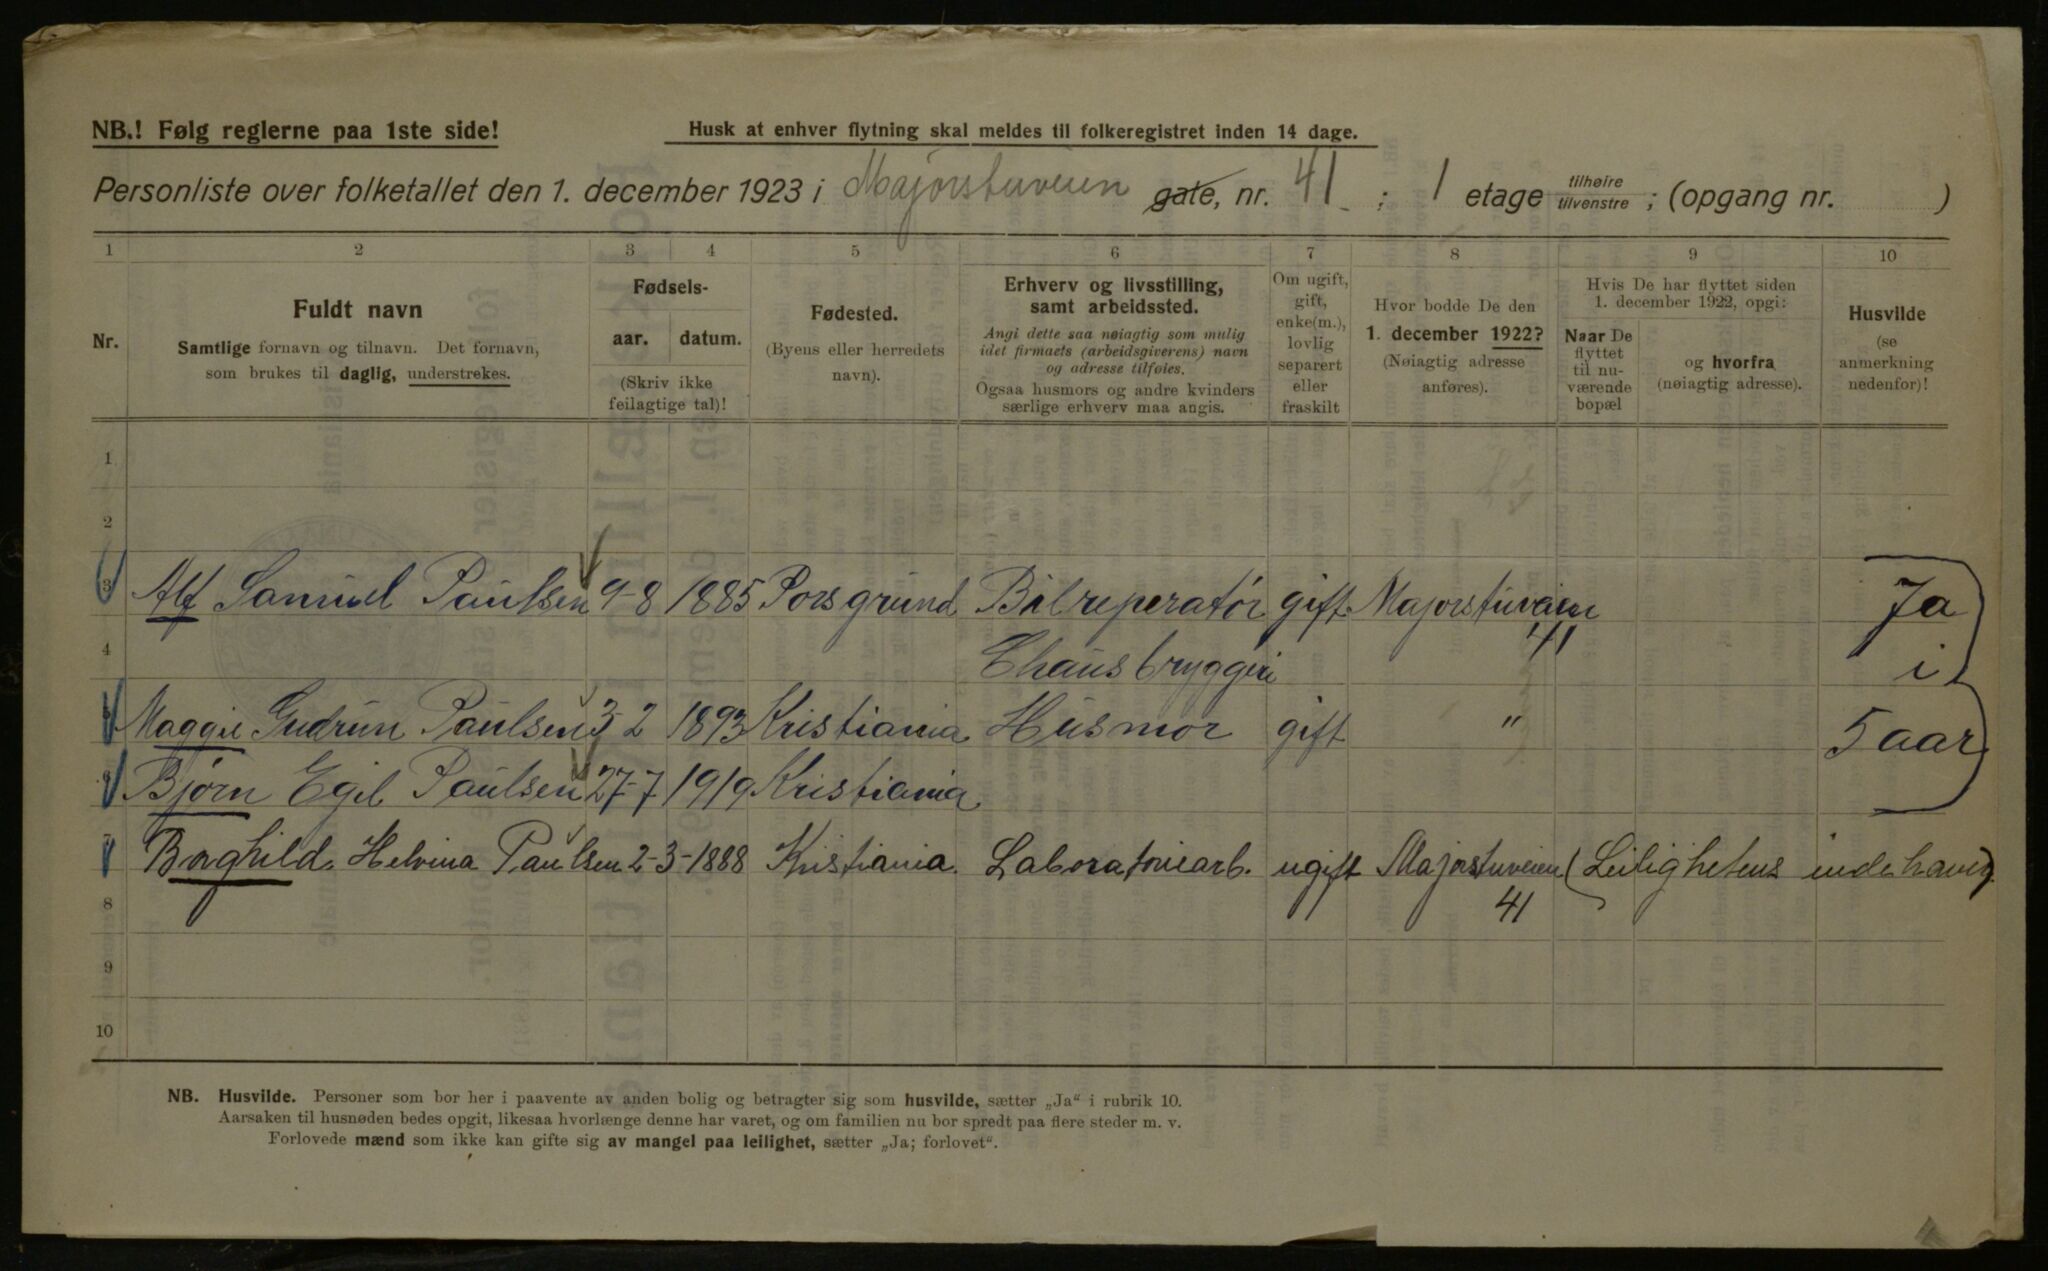 NB.! Følg reglerne paa 1ste side!
Husk at enhver flytning skal meldes til folkeregistret inden 14 dage.
Personliste over folketallet den 1. december 1923 i Majorstuveien gate, nr. 41. ; 1 etage tilhøire tilvenstre ; (opgang nr. )
1 2 3 4 5 6 7 8 9 10
Nr.
Fuldt navn
Samtlige fornavn og tilnavn. Det fornavn,
som brukes til daglig, understrekes.
Fødsels-
aar. datum.
(Skriv ikke
feilagtige tal)!
Fødested.
(Byens eller herredets
navn).
Erhverv og livsstilling,
samt arbeidssted.
Angi dette saa nøiagtig som mulig
idet firmaets (arbeidsgiverens) navn
og adresse tilføies.
Ogsaa husmors og andre kvinders
særlige erhverv maa angis.
Om ugift,
gift,
enke(m.),
lovlig
separert
eller
fraskilt
Hvor bodde De den
1. december 1922?
(Nøiagtig adresse
anføres).
Hvis De har flyttet siden
1. december 1922, opgi:
Naar De
flyttet
til nu-
værende
bopæl
og hvorfra
(nøiagtig adresse).
Husvilde
(se
anmerkning
nedenfor)!
1
2
3 Alf Samuel Paulsen 9-8 1885 Porsgrund Bilreperatør gift Majorstuveien Ja
41
4 bryggeri i
5 Maggie Gudrun Paulsen 3-2 1893 Kristiania Husmor gift " 5 aar
6 Bjørn Egil Paulsen 27-7 1919 Kristiania
7 Borghild Helvina Paulsen 2-3-1888 Kristiania. Laboratoriearb. ugift Majorstuveien (Leilighetens indehaver)
8 41
9
10
NB. Husvilde. Personer som bor her i paavente av anden bolig og betragter sig som husvilde, sætter „Ja“ i rubrik 10.
Aarsaken til husnøden bedes opgit, likesaa hvorlænge denne har varet, og om familien nu bor spredt paa flere steder m. v.
Forlovede mænd som ikke kan gifte sig av mangel paa leilighet, sætter „Ja; forlovet“.